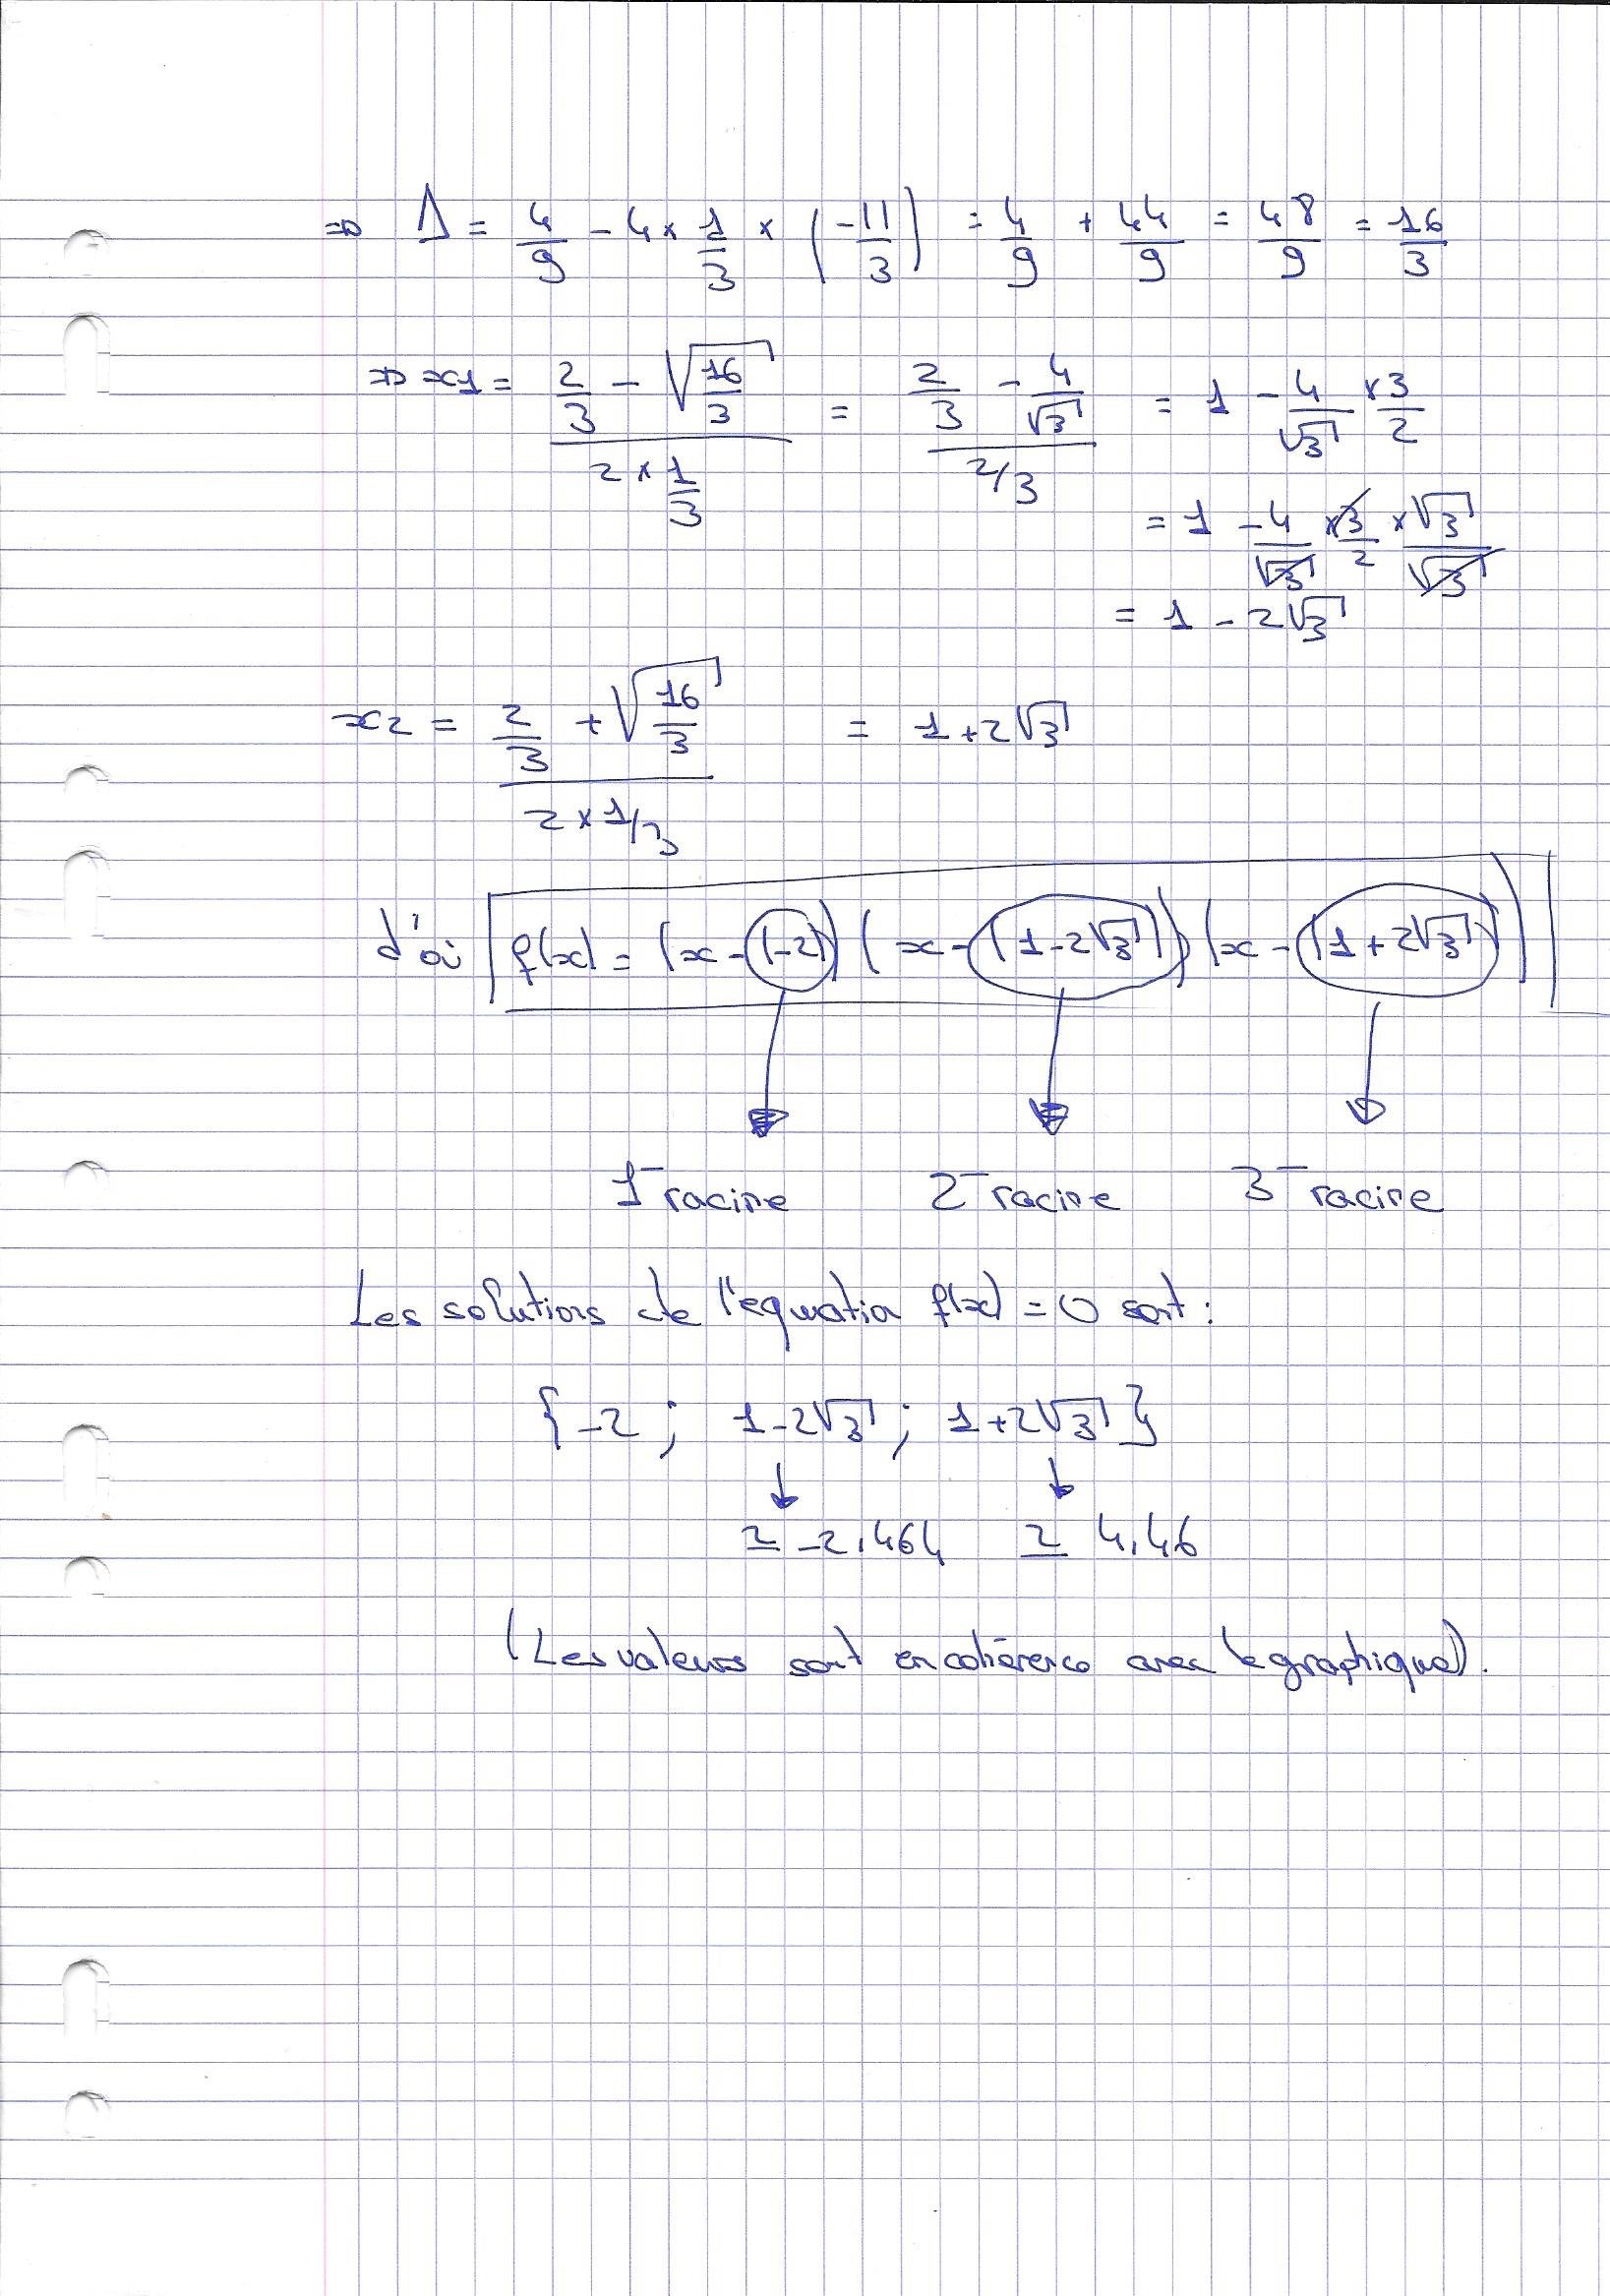 => Δ = 4/9 - 4 × 1/3 × (-11/3) = 4/9 + 44/9 = 48/9 = 16/3
=> x1 = (2/3 - √(16/3)) / (2 × 1/3) = (2/3 - 4/√3) / (2/3) = 1 - 4/√3 × 3/2
= 1 - 4/√3 × 3/2 × √3/√3
= 1 - 2√3
x2 = (2/3 + √(16/3)) / (2 × 1/3) = 1 + 2√3
d'où f(x) = (x - (-2)) (x - (1 - 2√3)) (x - (1 + 2√3))
1‾ racine 2‾ racine 3‾ racine
Les solutions de l'equation f(x) = 0 sont :
{ -2 ; 1 - 2√3 ; 1 + 2√3 }
↓ ↓
≃ -2,464 ≃ 4,46
(Les valeurs sont en cohérence avec le graphique).